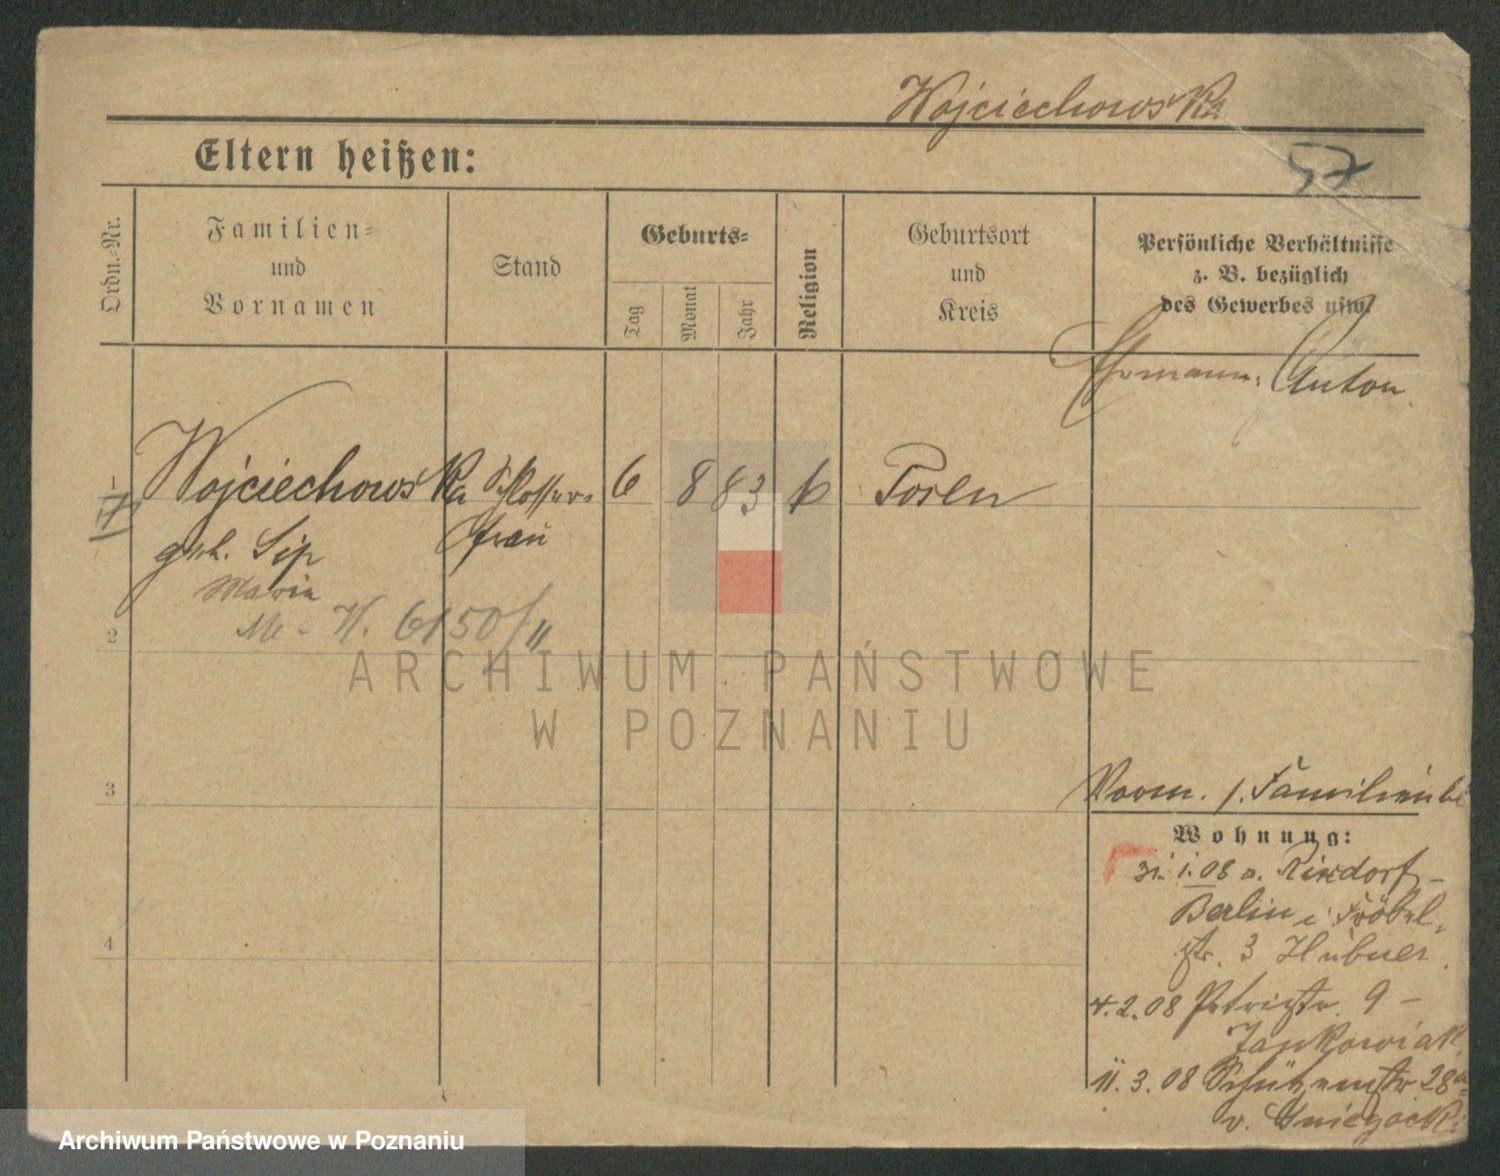 Wojciechowska
57
Eltern heißen:
Ordn.-Nr.
Familien-
und
Vornamen
Stand
Geburts-
Tag
Monat
Jahr
Religion
Geburtsort
und
Kreis
Persönliche Verhältnisse
z. B. bezüglich
des Gewerbes usw.
Ehemann: Anton
1
Wojciechowska Schlosser-
6 8 83 k Posen
geb. Sip frau
Maria
2
ARCHIWUM PAŃSTWOWE
W POZNANIU
3
4
Verm. s. Familienbl
Wohnung:
31.1.08 a. Rixdorf-
Berlin Fröbel-
str. 3 Hübner.
4.2.08 Petristr. 9 -
Jankowiak
11.3.08 Schützenstr 28a
v. Gniezacki
Archiwum Państwowe w Poznaniu